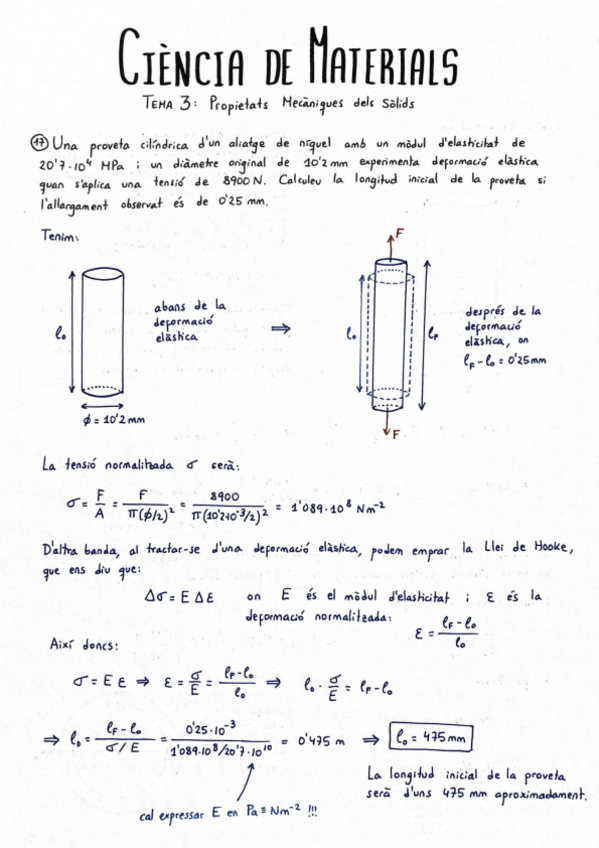 CIÈNCIA DE MATERIALS
TEMA 3: Propietats Mecàniques dels Sòlids
17 Una proveta cilíndrica d'un aliatge de níquel amb un mòdul d'elasticitat de
20'7·10⁴ MPa i un diàmetre original de 10'2 mm experimenta deformació elàstica
quan s'aplica una tensió de 8900 N. Calculeu la longitud inicial de la proveta si
l'allargament observat és de 0'25 mm.
Tenim:
F
l₀
abans de la
deformació
elàstica
⇒
l₀
l_F
després de la
deformació
elàstica, on
l_F - l₀ = 0'25 mm
ϕ = 10'2 mm
F
La tensió normalitzada σ serà:
σ = F/A = F/(π(ϕ/2)²) = 8900/(π(10'2·10⁻³/2)²) = 1'089·10⁸ Nm⁻²
D'altra banda, al tractar-se d'una deformació elàstica, podem emprar la Llei de Hooke,
que ens diu que:
Δσ = E Δε on E és el mòdul d'elasticitat i ε és la
deformació normalitzada: ε = (l_F - l₀)/l₀
Així doncs:
σ = E ε ⇒ ε = σ/E = (l_F - l₀)/l₀ ⇒ l₀ · σ/E = l_F - l₀
⇒ l₀ = (l_F - l₀)/(σ/E) = 0'25·10⁻³/(1'089·10⁸/20'7·10¹⁰) = 0'475 m ⇒ l₀ = 475 mm
La longitud inicial de la proveta
serà d'uns 475 mm aproximadament.
cal expressar E en Pa ≡ Nm⁻² !!!